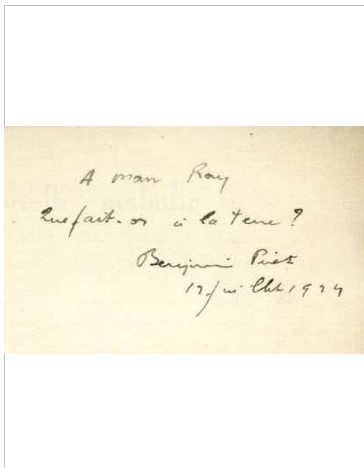 A Man Ray
Que fait-on à la terre ?
Benjamin Péret
17 juillet 1924